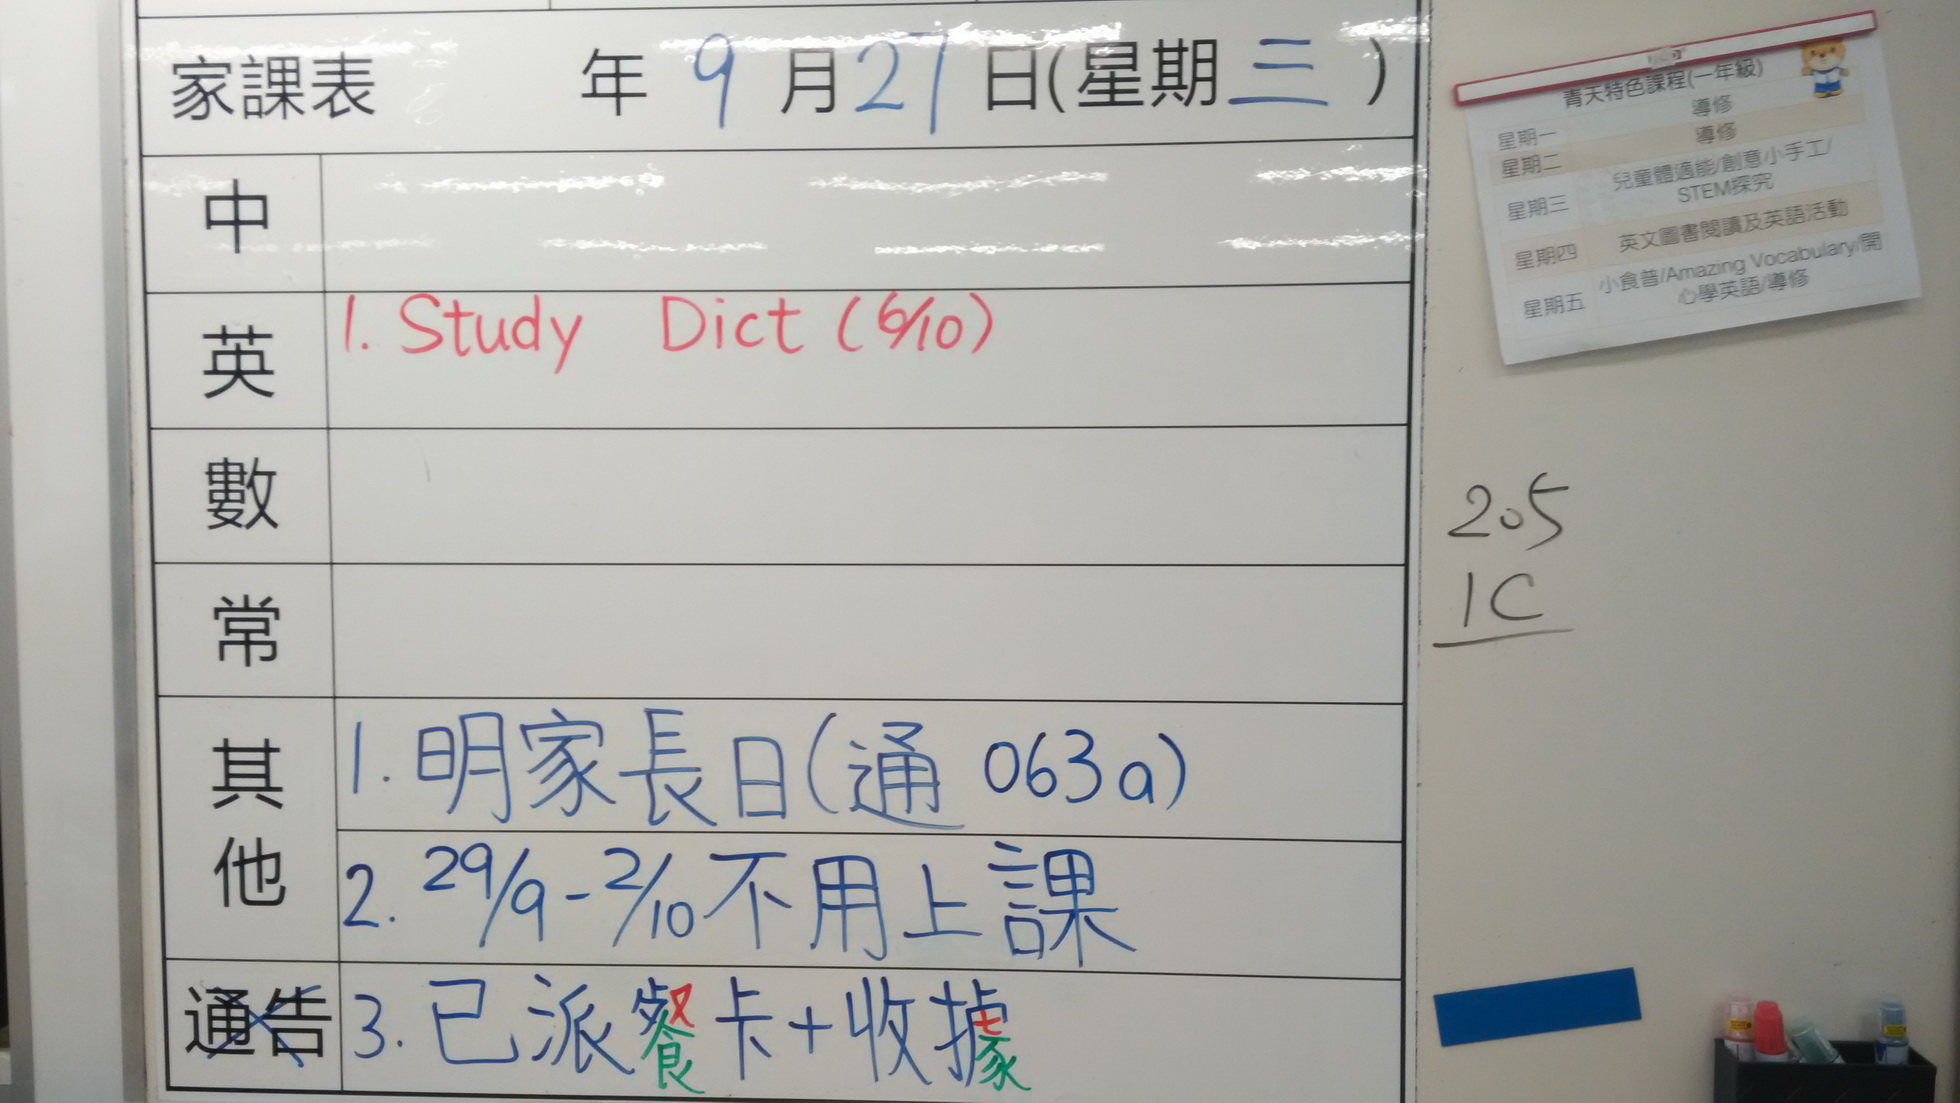 家課表 年 9 月 27 日(星期 三 )
中
英 1. Study Dict (6/10)
數
常
其他
1. 明家長日(通 063a)
2. 29/9 - 2/10 不用上課
通告 3. 已派餐卡+收據
青天特色課程(一年級)
星期一 導修
星期二 導修
星期三 兒童體適能/創意小手工/
STEM探究
星期四 英文圖書閱讀及英語活動
星期五 小食普/Amazing Vocabulary/開
心學英語/導修
205
1C